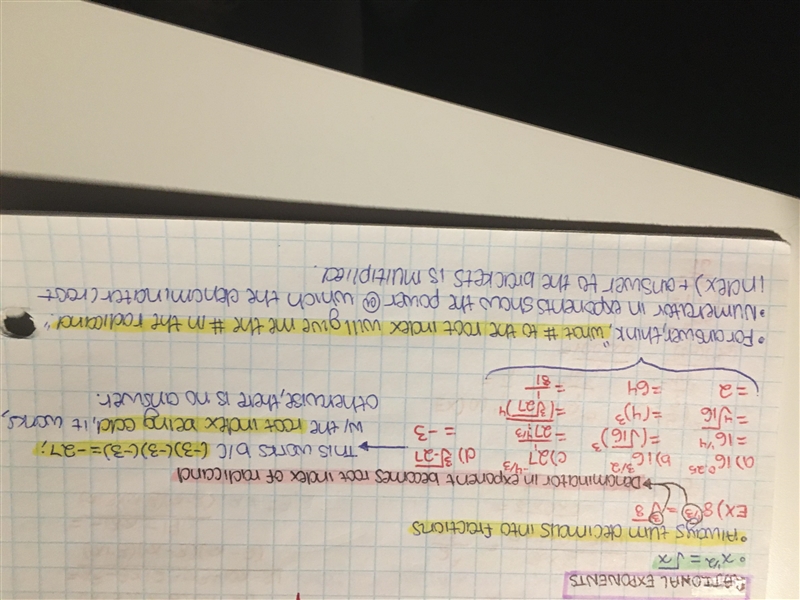 RATIONAL EXPONENTS
• x^1/2 = √x
• Always turn decimals into fractions
EX) 8^1/3 = ∛8
Denominator in exponent becomes root index of radicand
a) 16^0.25 b) 16^3/2 c) 27^-4/3 d) ∛-27 This works b/c (-3)(-3)(-3) = -27;
= 16^1/4 = (√16)^3 = 1/27^4/3 = -3 the root index being odd, it works,
= ∜16 = (4)^3 = 1/(∛27)^4 otherwise, there is no answer.
= 2 = 64 = 1/81
• For answer, think "what # to the root index will give me the # in the radicand"
• Numerator in exponent shows the power @ which the denominator (root
index) + answer to the brackets is multiplied.